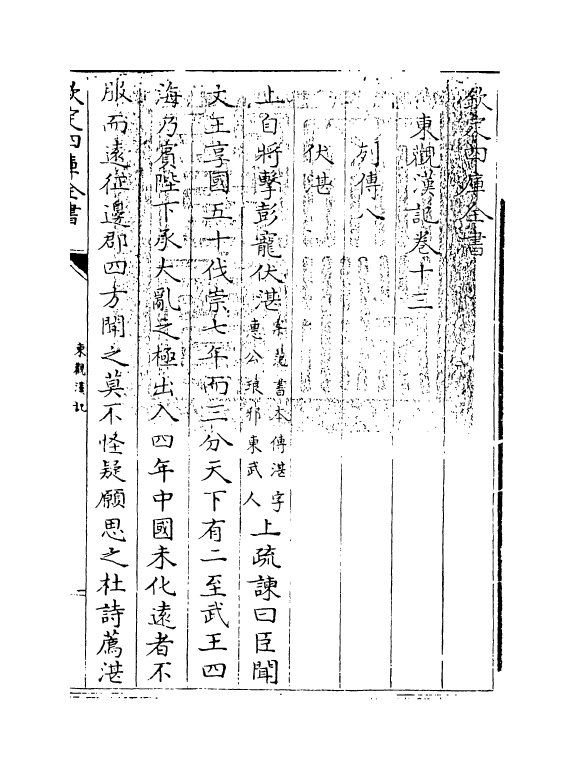 欽定四庫全書
東觀漢記卷十三
列傳八
伏湛
上自將擊彭寵伏湛案范書本傳湛字惠公琅邪東武人上疏諫曰臣聞
文王享國五十伐崇七年而三分天下有二至武王四
海乃賓陛下承大亂之極出入四年中國未化遠者不
服而遠征邊郡四方聞之莫不怪疑願思之杜詩薦湛
欽定四庫全書
東觀漢記